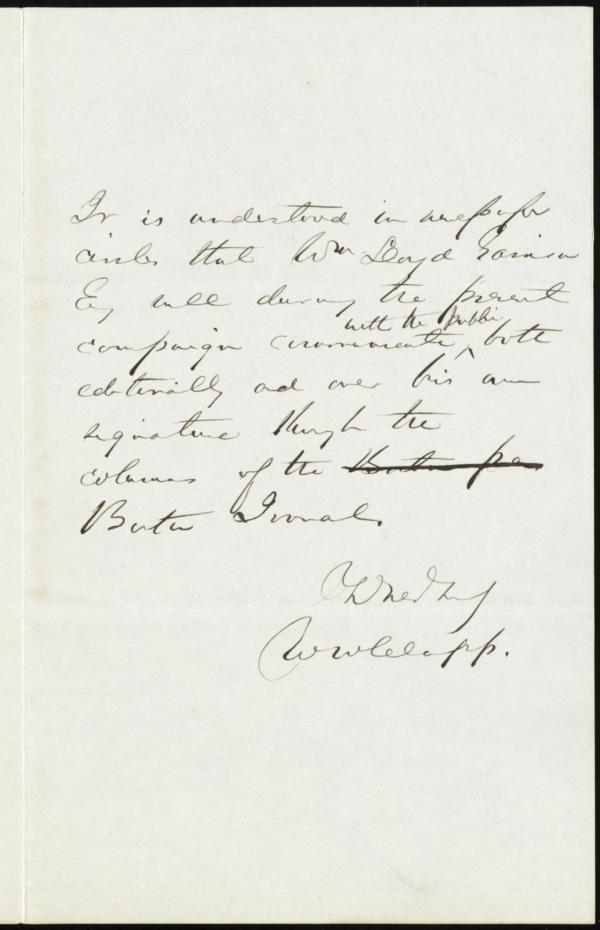 It is understood in newspaper
circles that Wm Lloyd Garrison
Esq will during the present
campaign communicate with the public, both
editorially and over his own
signature through the
columns of the Boston pa
Boston Journal.
W W Clapp.